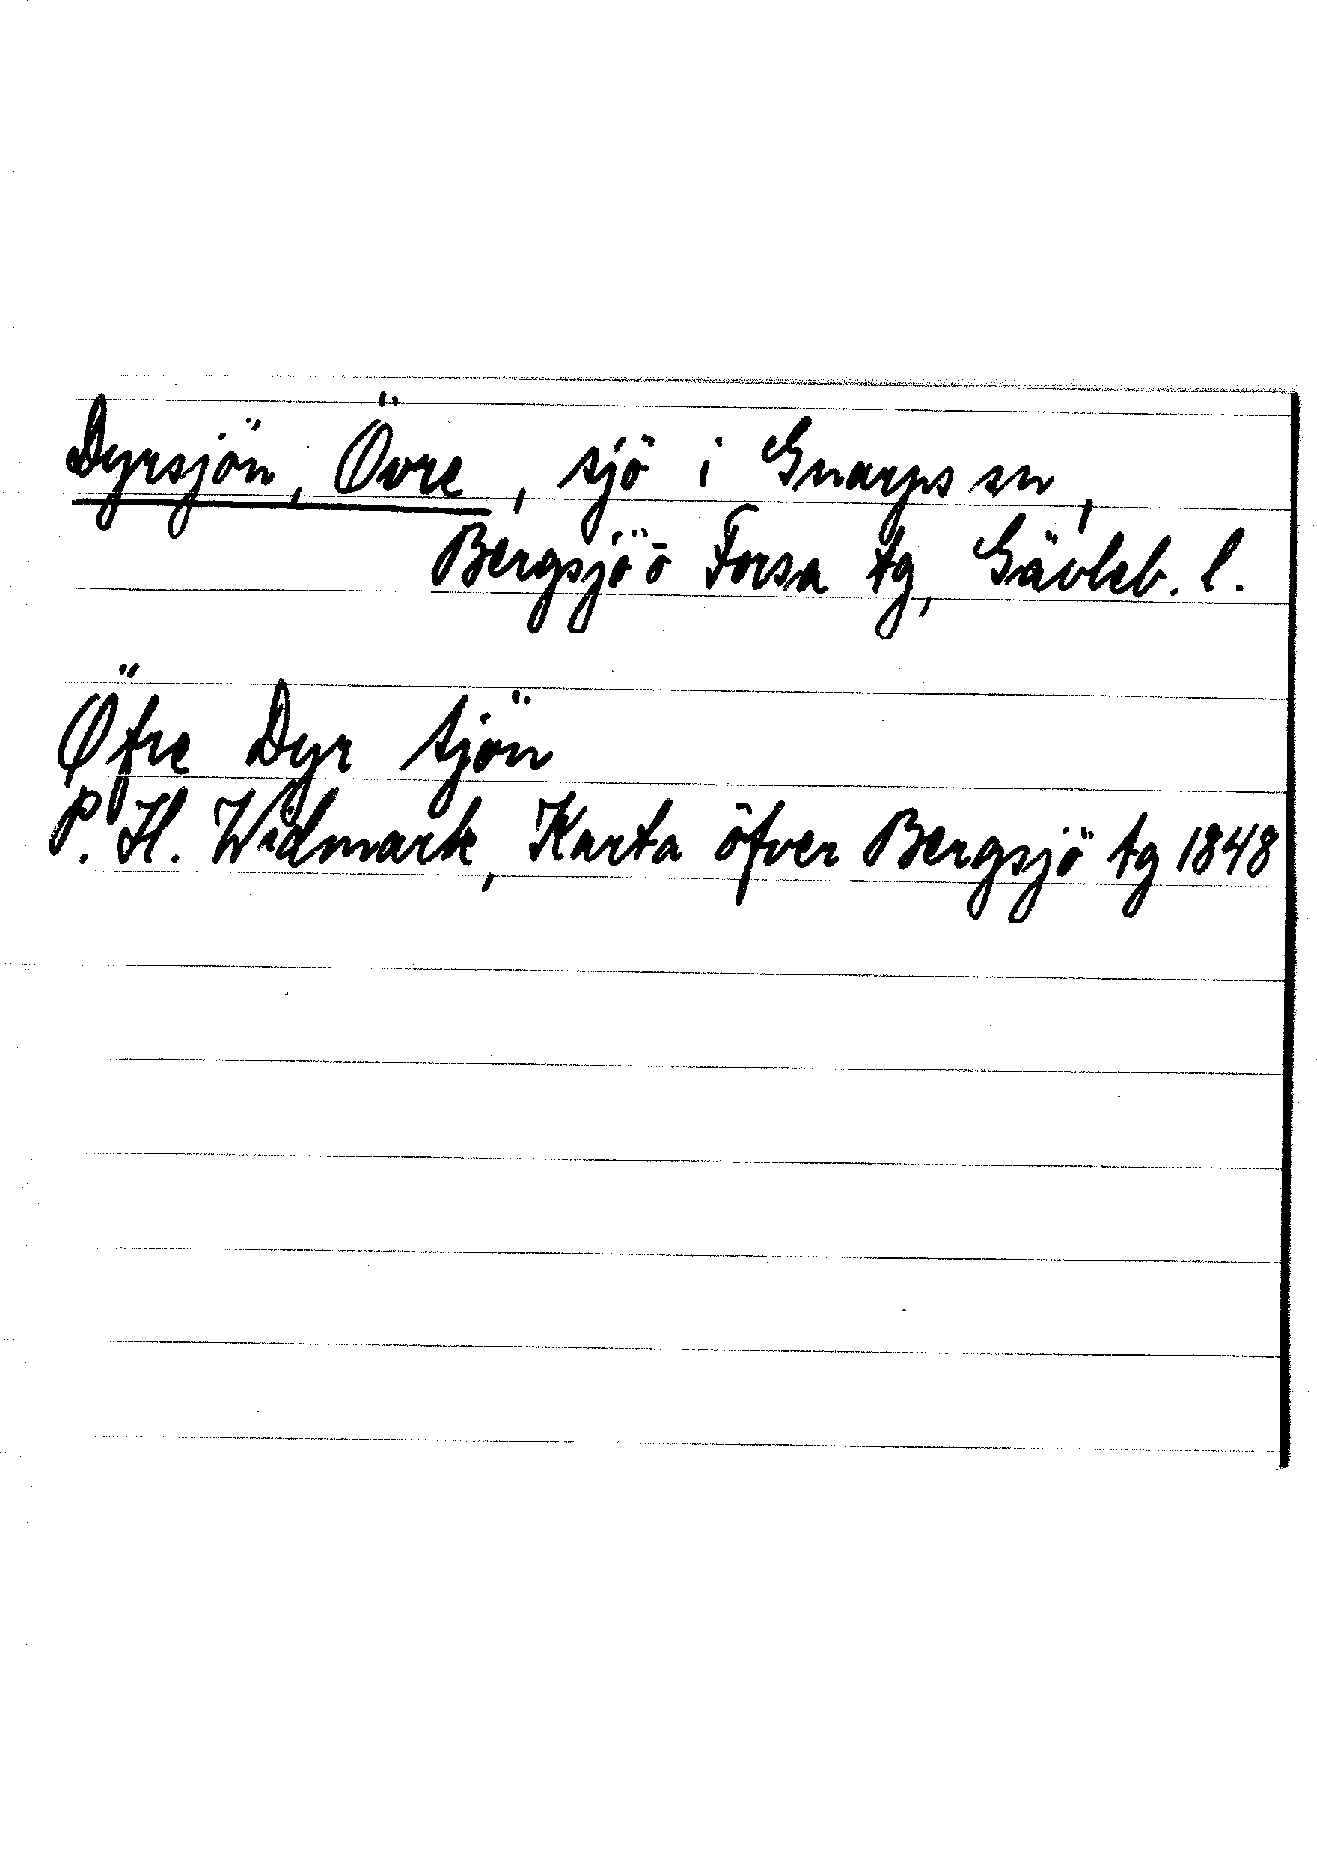 Dyrsjön, Övre, sjö i Gnarps sn,
Bergsjö o Forsa tg, Gävleb. l.
Öfre Dyr tjön
P. H. Widmark, Karta öfver Bergsjö tg 1848